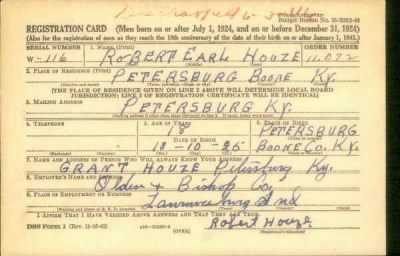 REGISTRATION CARD—(Men born on or after July 1, 1924, and on or before December 31, 1924)
(Also for the registration of men as they reach the 18th anniversary of the date of their birth on or after January 1, 1943.)
SERIAL NUMBER 1. NAME (Print) ORDER NUMBER
W-116 ROBERT EARL HOUZE 11,072
(First) (Middle) (Last)
2. PLACE OF RESIDENCE (Print)
PETERSBURG BOONE KY.
[THE PLACE OF RESIDENCE GIVEN ON LINE 2 ABOVE WILL DETERMINE LOCAL BOARD
JURISDICTION; LINE 2 OF REGISTRATION CERTIFICATE WILL BE IDENTICAL]
3. MAILING ADDRESS
PETERSBURG KY.
4. TELEPHONE 5. AGE IN YEARS 6. PLACE OF BIRTH
18 PETERSBURG
DATE OF BIRTH
12-10-25 BOONE CO. KY.
7. NAME AND ADDRESS OF PERSON WHO WILL ALWAYS KNOW YOUR ADDRESS
GRANT HOUZE Petersburg Ky.
8. EMPLOYER'S NAME AND ADDRESS
& Bishop Co.
9. PLACE OF EMPLOYMENT OR BUSINESS
Lawrenceburg Ind
I AFFIRM THAT I HAVE VERIFIED ABOVE ANSWERS AND THAT THEY ARE TRUE.
Robert Houze
DSS Form 1 (OVER) (Registrant's signature)